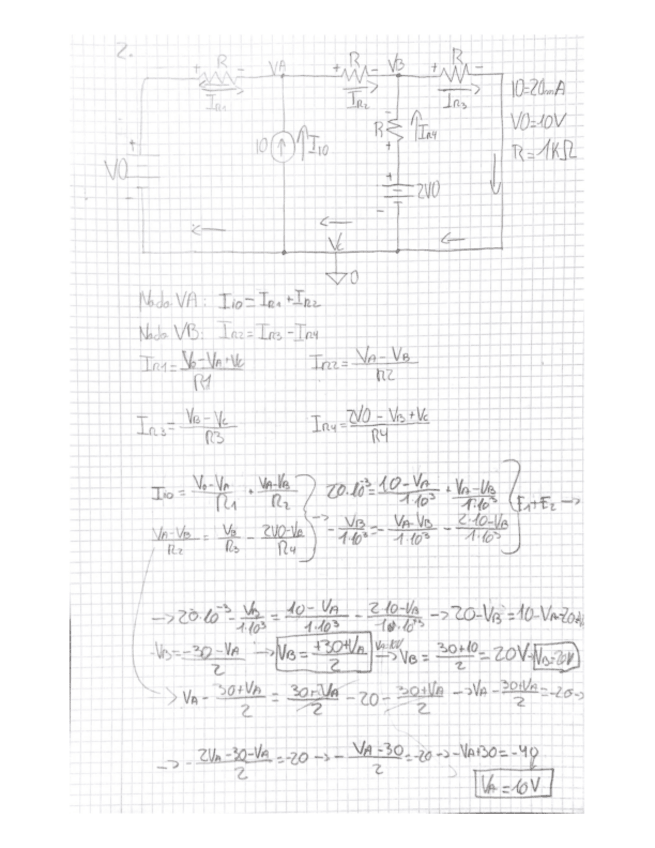 2.
R VA R VB R
+ - + - + -
IR1 IR2 IR3
IO=20mA
VO=10V
R=1KΩ
IO IIO R IR4
VO 2VO
VC
0
Nodo VA: IIO = IR1 + IR2
Nodo VB: IR2 = IR3 - IR4
IR1 = (V0 - VA + VC)/R1 IR2 = (VA - VB)/R2
IR3 = (VB - VC)/R3 IR4 = (2VO - VB + VC)/R4
IIO = (V0 - VA)/R1 + (VA - VB)/R2 20·10^-3 = (10 - VA)/1·10^3 + (VA - VB)/1·10^3
(VA - VB)/R2 = VB/R3 - (2VO - VA)/R4 → - VB/1·10^3 = - (VA - VB)/1·10^3 - (2·10 - VB)/1·10^3 E1+E2 →
→ 20·10^-3 - VB/1·10^3 = (10 - VA)/1·10^3 - (2·10 - VB)/10·10^3 → 20 - VB = 10 - VA - 20
-VB = (-30 - VA)/2 → VB = (+30 + VA)/2 → VB = (30 + 10)/2 = 20V VB=20V
VA - (30 + VA)/2 = (30 + VA)/2 - 20 - (30 + VA)/2 → VA - (30 + VA)/2 = -20 →
→ - (2VA - 30 - VA)/2 = -20 → - (VA - 30)/2 = -20 → -VA + 30 = -40
VA = 10V